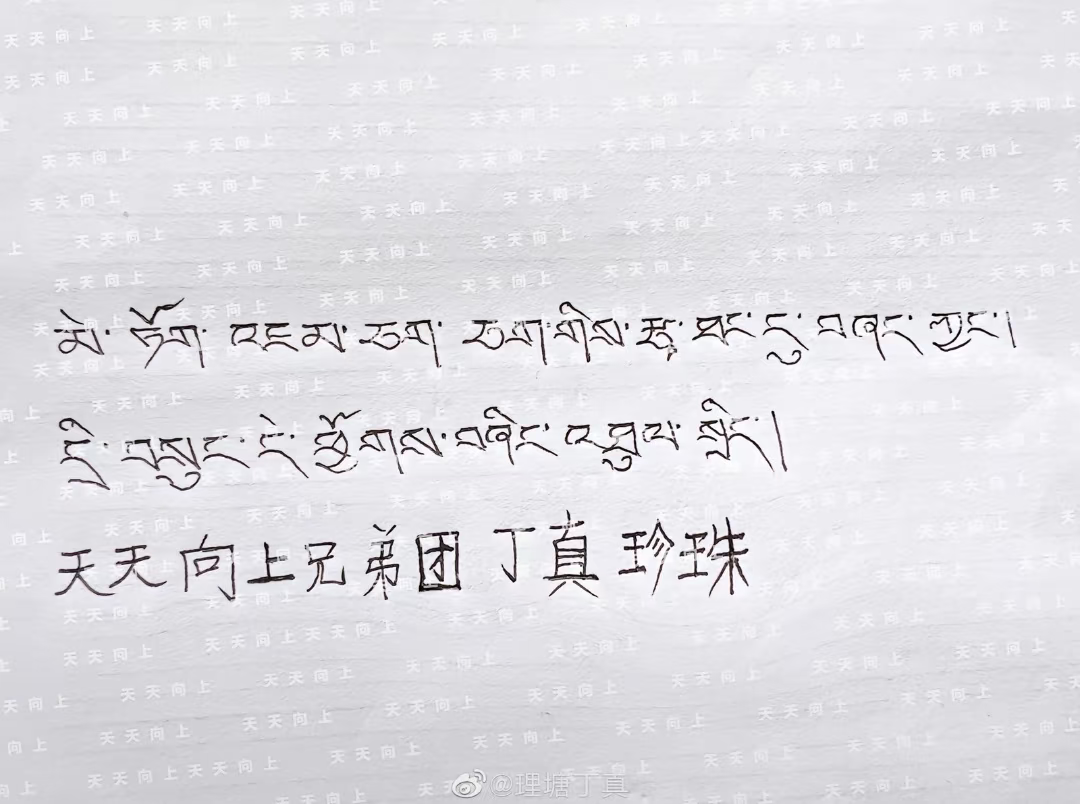 མེ་ཏོག་འཇམ་ཅག་ཅག་གིས་རྩྭ་ཐང་དུ་བཞད་ཀྱང་།
དྲི་བསུང་དེ་ཕྱོགས་བཞིར་འཐུལ་སྲིད།
天天向上兄弟团 丁真珍珠
@理塘丁真